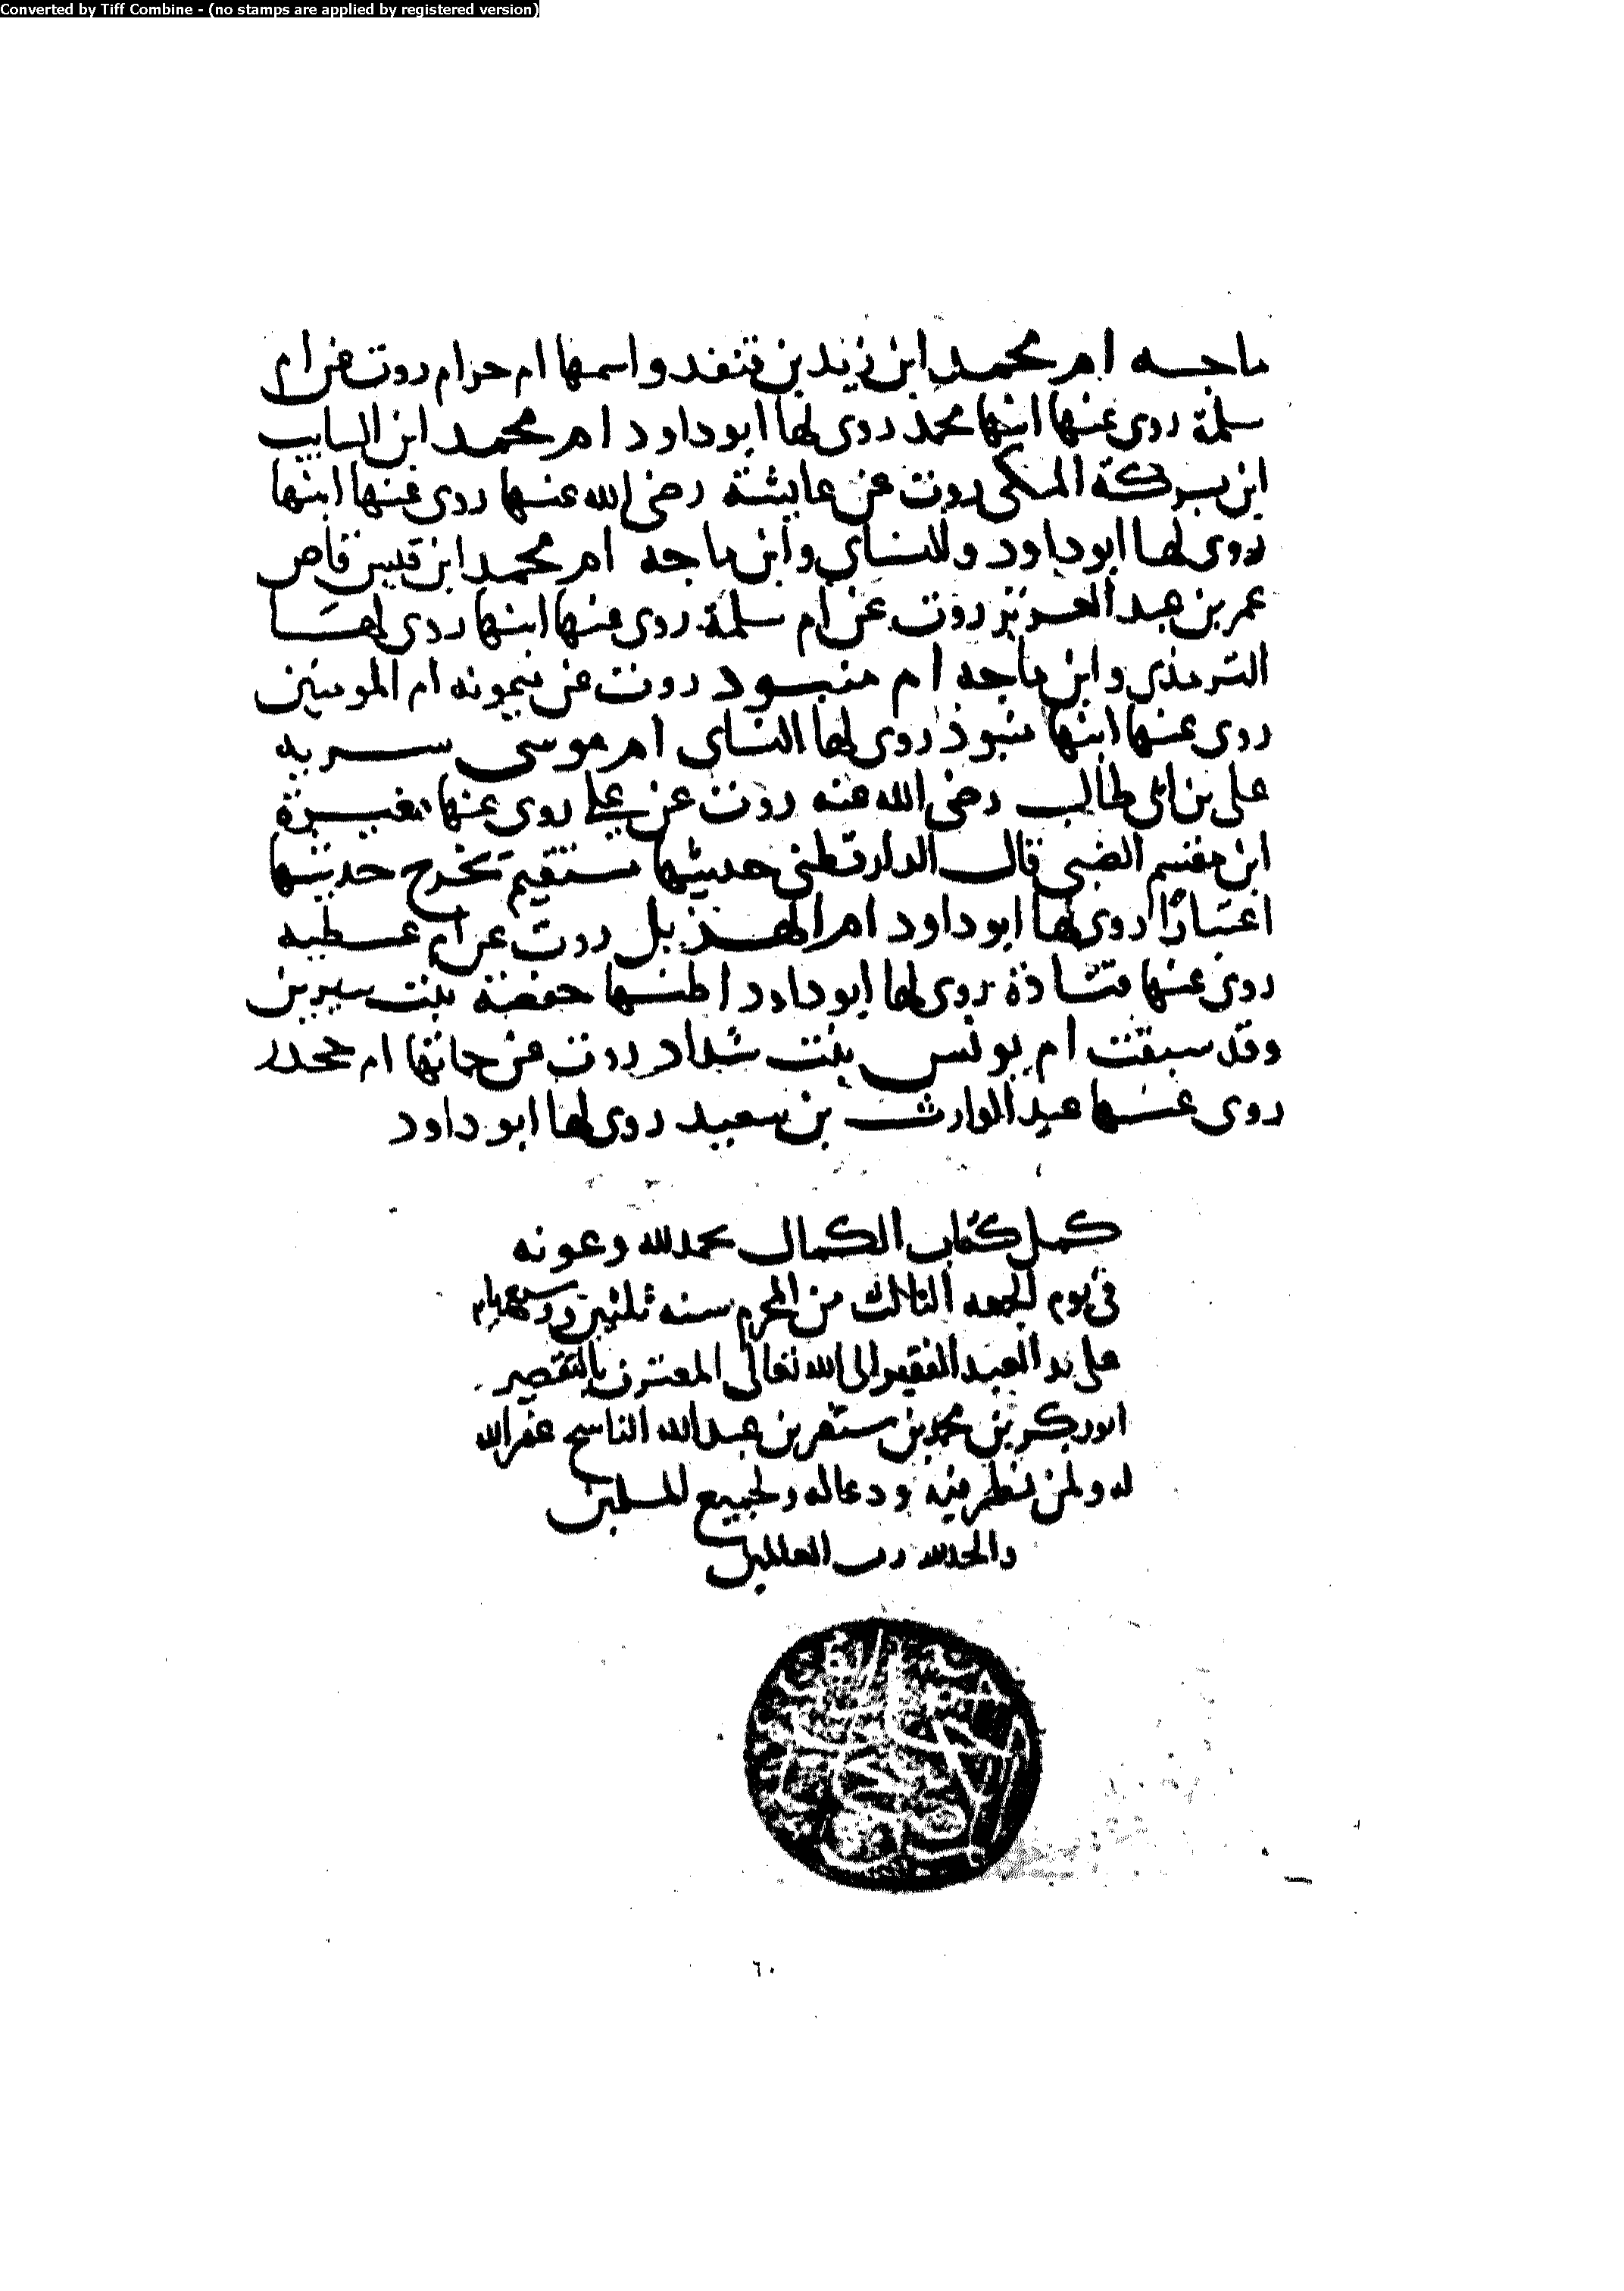 Converted by Tiff Combine - (no stamps are applied by registered version)
ماجه ام محمد ابن زيد بن قنفد واسمها ام حرام روت عن ام
سلمة روى عنها ابنها محمد روى لها ابو داود ام محمد ابن السايب
ابن بركة المكي روت عن عايشة رضى الله عنها روى عنها ابنها
روى لها ابو داود والنساي وابن ماجه ام محمد ابن قيس قاص
عمر بن عبد العزيز روت عن ام سلمة روى عنها ابنها روى لها
الترمذي وابن ماجه ام منبود روت عن ميمونه ام المومنين
روى عنها ابنها منبوذ روى لها النساى ام موسى سريه
على بن ابى طالب رضى الله عنه روت عن على روى عنها مغيرة
ابن مقسم الضبي قال الدارقطني حديثها مستقيم يخرج حديثها
اعتبارًا روى لها ابو داود ام الهذيل روت عن ام عطيه
روى عنها قتادة روى لها ابو داود اظنها حفصة بنت سيرين
وقد سبقت ام يونس بنت شداد روت عن حماتها ام جحدر
روى عنها عبد الوارث بن سعيد روى لها ابو داود
كمل كتاب الكمال بحمد الله وعونه
في يوم الجمعه الثالث من المحرم سنه ثلثين وسبعمايه
على يد العبد الفقير الى الله تعالى المعترف بالتقصير
ابو بكر بن محمد بن سنقر بن عبد الله الناسخ غفر الله
له ولمن نظر فيه ودعا له ولجميع المسلمين
والحمد لله رب العالمين
٦٠